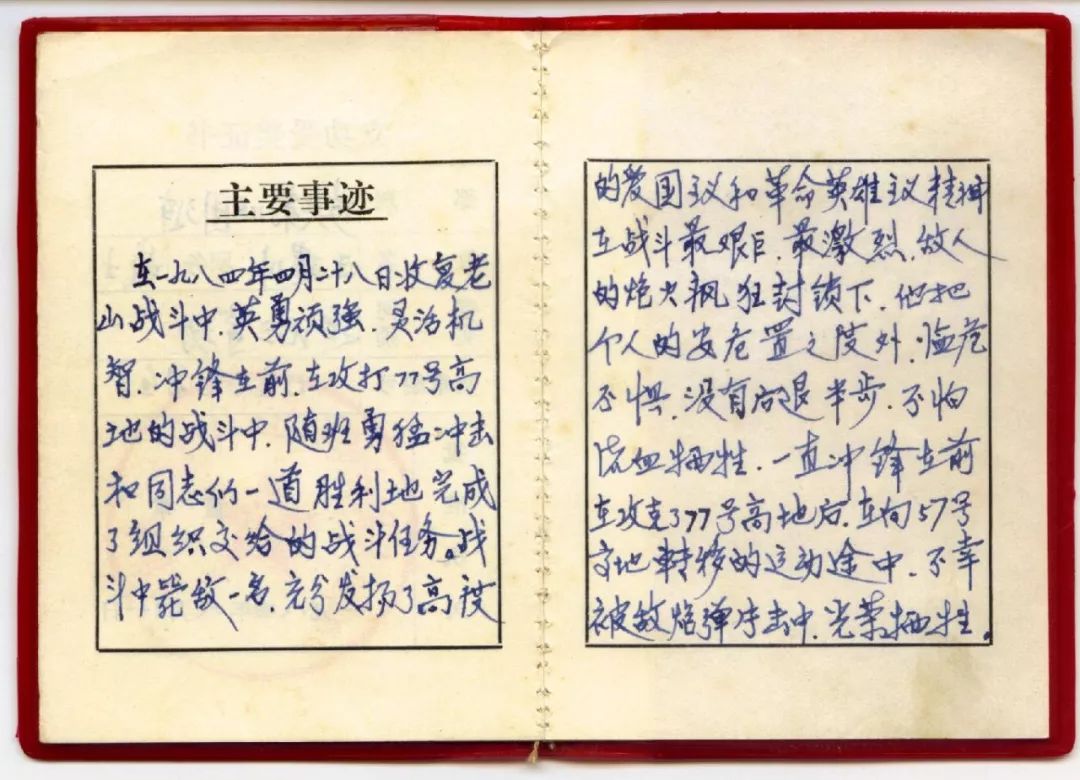 主要事迹
在一九八四年四月二十八日收复老
山战斗中，英勇顽强，灵活机
智，冲锋在前，在攻打77号高
地的战斗中，随班勇猛冲击
和同志们一道胜利地完成
了组织交给的战斗任务。战
斗中毙敌一名，充分发扬了高度
的爱国主义和革命英雄主义精神
在战斗最艰巨，最激烈，敌人
的炮火疯狂封锁下，他把
个人的安危置之度外，临危
不惧，没有后退半步，不怕
流血牺牲，一直冲锋在前
在攻克了77号高地后，在向57号
高地转移的运动途中，不幸
被敌炮弹片击中，光荣牺牲。